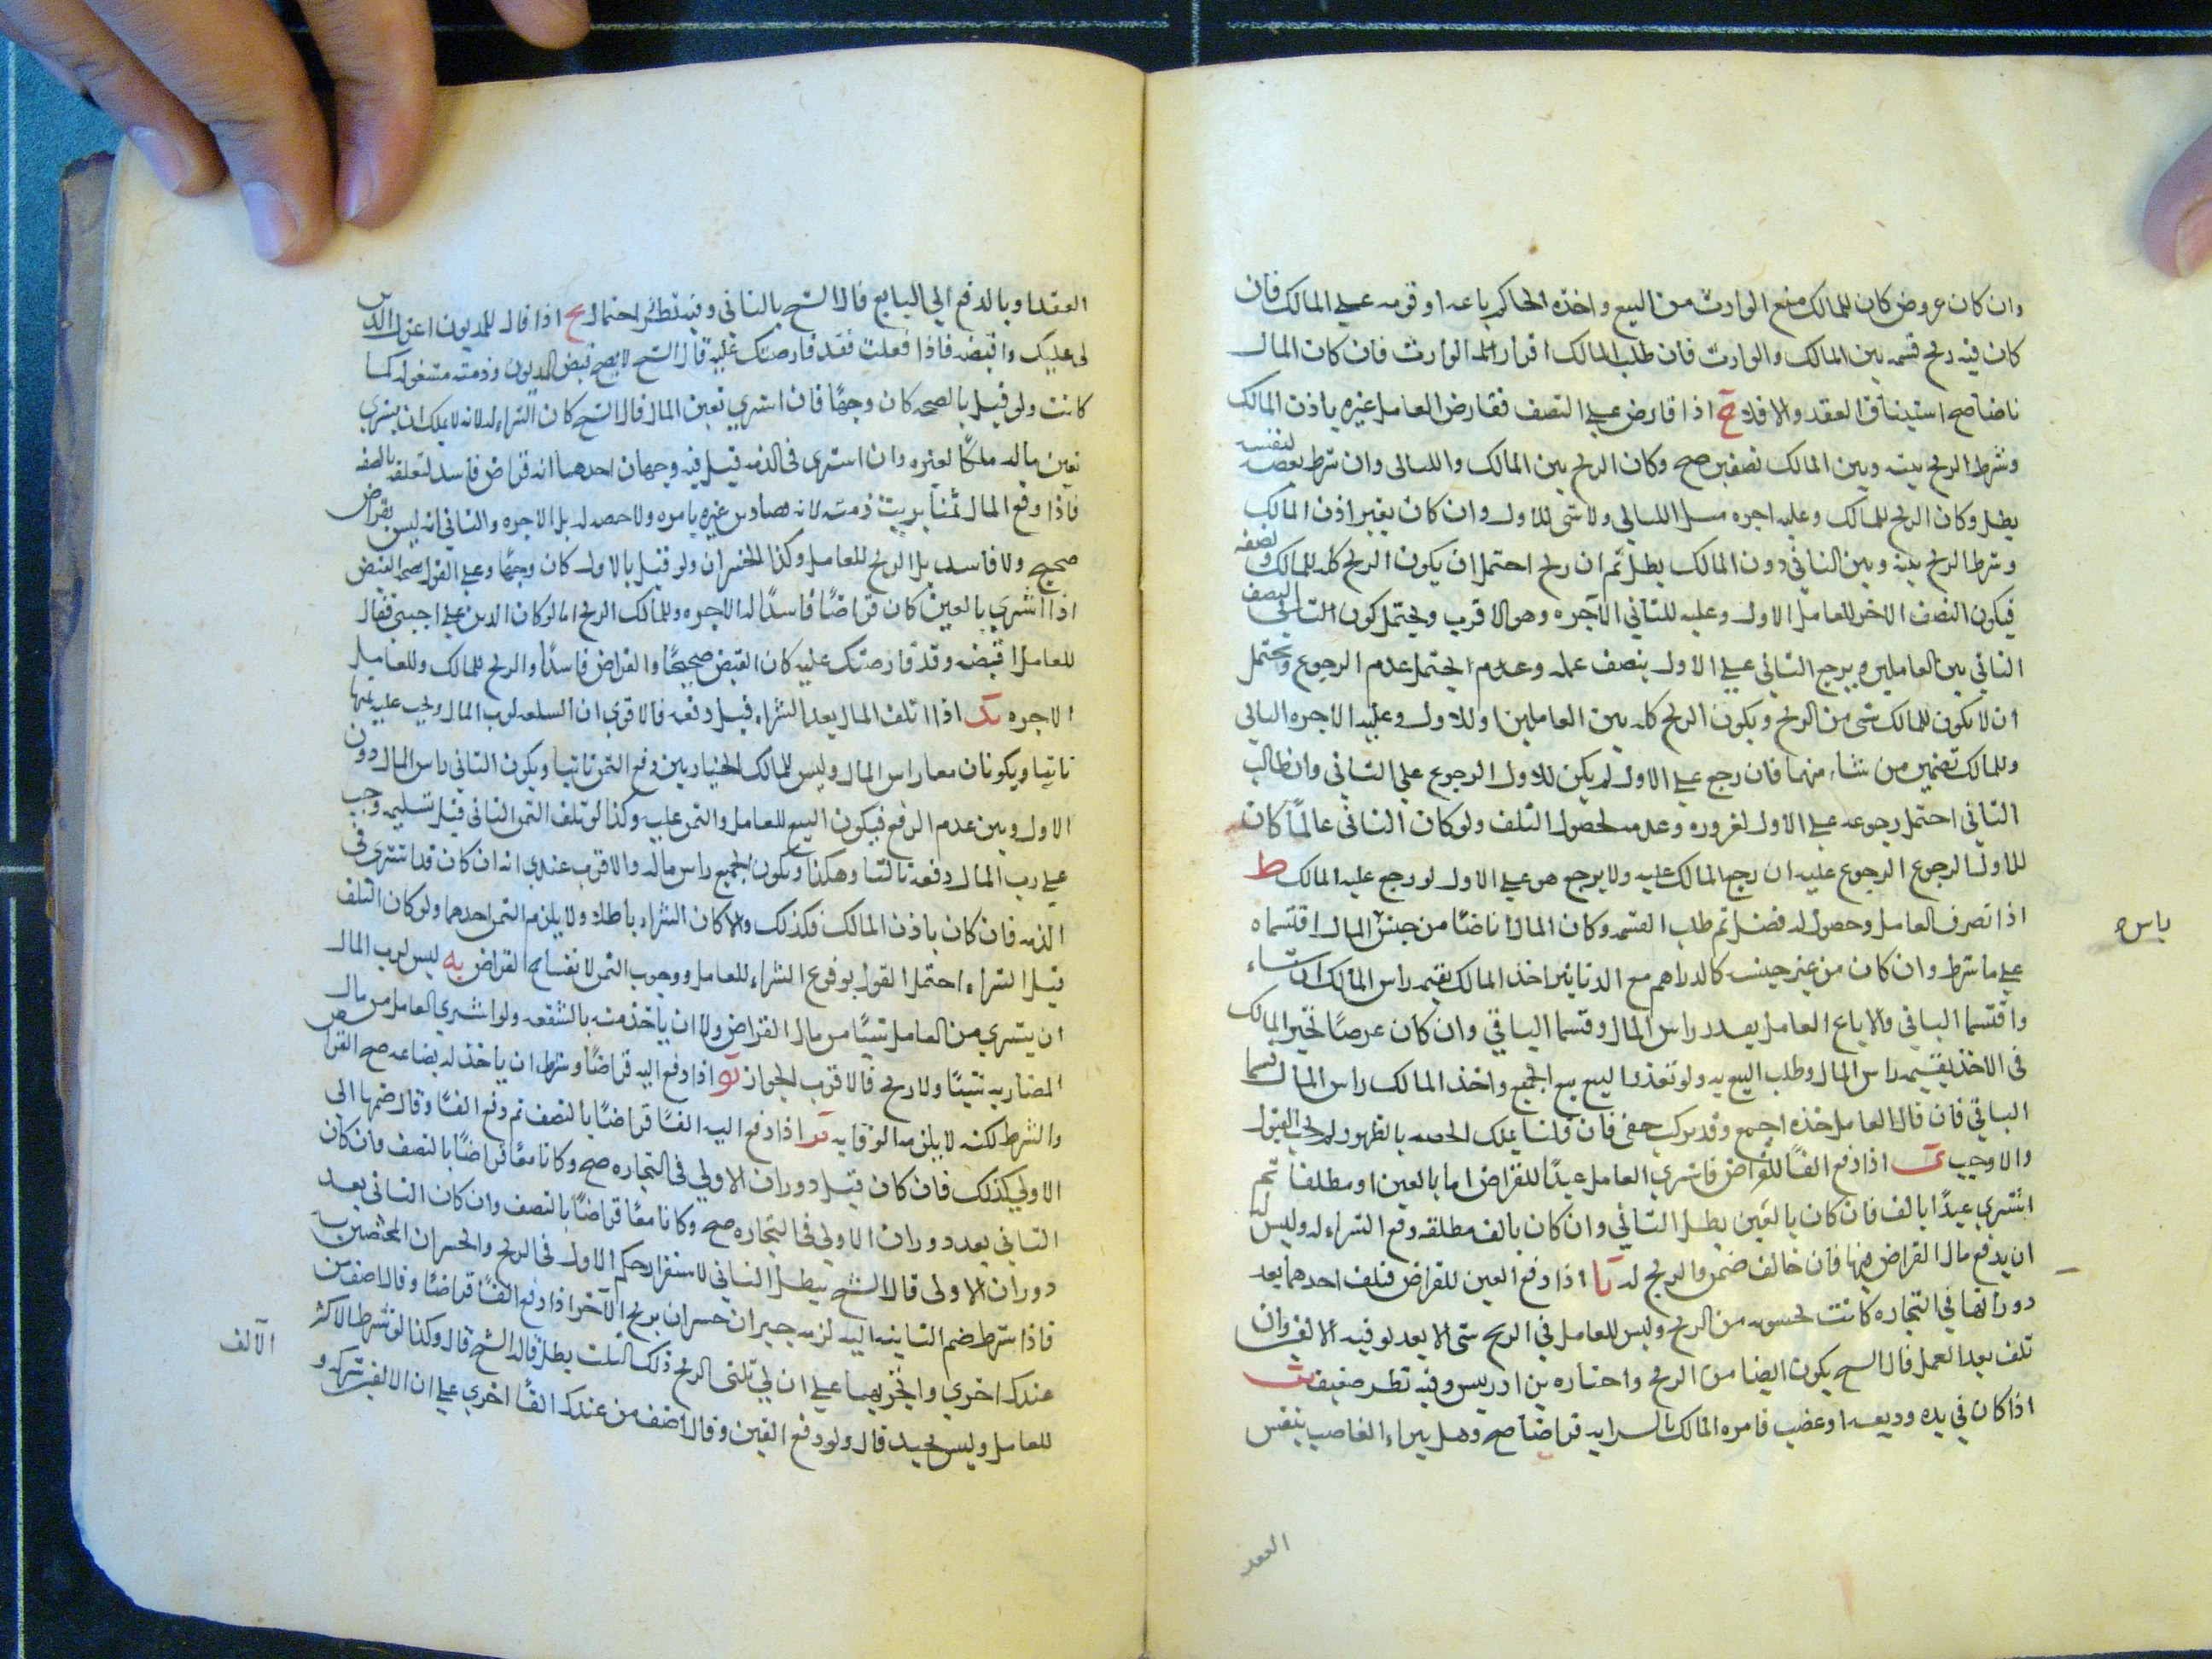 وان كان عروض كان للمالك منع الوارث من البيع واخذه الحاكم باعه او قومه علي المالك فان
كان فيه ربح قسمه بين المالك والوارث فان طلب المالك اقرار الوارث فان كان المال
ناضا صح استيناف العقد والا فلا ح اذا قارض علي النصف فقارض العامل غيره باذن المالك
وشرط الربح بينه وبين المالك نصفين صح وكان الربح بين المالك والثاني وان شرط بعضه لنفسه
بطل وكان الربح للمالك وعليه اجره مثل الثاني ولا شي للاول وان كان بغير اذن المالك
وشرط الربح بينه وبين الثاني دون المالك بطل ثم ان ربح احتمل ان يكون الربح كله للمالك ونصفه
فيكون النصف الاخر للعامل الاول وعليه للثاني الاجره وهو الاقرب ويحتمل كون النصف
الثاني بين العاملين ويرجع الثاني علي الاول بنصف عمله وعدمه لا يحتمل عدم الرجوع ويحتمل
ان لا يكون للمالك شي من الربح ويكون الربح كله بين العاملين او للاول وعليه الاجره للثاني
وللمالك تضمين من شاء منهما فان رجع علي الاول لم يكن للاول الرجوع علي الثاني وان طالب
الثاني احتمل رجوعه علي الاول لغروره وعدمه لحصول التلف ولو كان الثاني عالما كان
للاول الرجوع عليه ان رجع المالك عليه ولا يرجع هو علي الاول لو رجع عليه المالك ط
اذا تصرف العامل وحصل له فضل ثم طلب القسمه وكان المال ناضا من جنس المال اقتسماه
علي ما شرط وان كان من غير جنسه كالدراهم مع الدنانير اخذ المالك بقيمه راس المال ان شاء
واقتسما الباقي والا باع العامل بقدر راس المال وقسما الباقي وان كان عرضا تخير المالك
في الاخذ بقيمه راس المال وطلب البيع به ولو تعذر البيع بيع الجميع واخذ المالك راس المال وقسما
الباقي فان قال العامل خذه اجمع وقد تركت حقي فان قلنا يملك الحصه بالظهور لم يجب القبول
والا وجب ى اذا دفع الفا للقراض فاشري العامل عبدا للقراض اما بالعين او مطلقا ثم
اشتري عبدا بالف فان كان بالعين بطل الثاني وان كان بالف مطلقه وقع الشراء له وليس له
ان يدفع مال القراض فيها فان خالف ضمن والربح له يا اذا دفع الفين للقراض فتلف احدهما بعد
دورانها في التجاره كانت محسوبه من الربح وليس للعامل في الربح شي الا بعد توفيه الالف وان
تلف بعد العمل قال الشيخ يكون ايضا من الربح واختاره بن ادريس وفيه نظر ضعيف يب
اذا كان في يده وديعه او غصب فامره المالك بالشرا به قراضا صح وهل يبراء الغاصب بنفس
باس
العقد
العقد او بالدفع الي البايع قال الشيخ بالثاني وفيه نظر احتمال يج اذا قال للمديون اعزل الدين
لي عليك واقبضه فاذا فعلت فقد قارضتك عليه قال الشيخ لا يصح قبض المديون وذمته مشغوله كما
كانت ولو قيل بالصحه كان وجها فان اشتري بعين المال قال الشيخ كان الشراء له لانه لا يملك ان يشري
بعين ماله ملكا لغيره وان اشتري في الذمه قيل فيه وجهان احدهما انه قراض فاسد لتعلقه بالصفه
فاذا وقع المال ثمنا بريت ذمته لانه قضا دين غيره بامره ولا حصه له بل الاجره والثاني انه ليس بقراض
صحيح ولا فاسد بل الربح للعامل وكذا الخسران ولو قيل بالاول كان وجها وعلي القول بصحه القبض
اذا اشري بالعين كان قراضا فاسدا له الاجره وللمالك الربح اما لو كان الدين علي اجنبي فقال
للعامل اقبضه وقد قارضتك عليه كان القبض صحيحا والقراض فاسدا والربح للمالك وللعامل
الاجره يد اذا تلف المال بعد الشراء قبل دفعه فالاقوي ان السلعه لرب المال ويجب عليه ثمنها
ثانيا ويكونان معا راس المال وليس للمالك الخيار بين دفع الثمن ثانيا ويكون الثاني راس المال دون
الاول وبين عدم الدفع فيكون البيع للعامل والثمن عليه وكذا لو تلف الثمن الثاني قبل تسليمه وجب
علي رب المال دفعه ثالثا وهكذا ويكون الجميع راس ماله والاقرب عندي انه ان كان قد اشتري في
الذمه فان كان باذن المالك فكذلك والا كان الشراء باطلا ولا يلزم الثمن احدهما ولو كان التلف
قبل الشراء احتمل القول بوقوع الشراء للعامل ووجوب الثمن لانفساخ القراض يه ليس لرب المال
ان يشتري من العامل شيئا من مال القراض ولا ان ياخذ منه بالشفعه ولو اشتري العامل من مال
المضاربه شيئا ولا ربح فالاقرب الجواز يو اذا دفع اليه قراضا وشرط ان ياخذ له بضاعه صح القراض
والشرط لكنه لا يلزمه الوفا به يز اذا دفع اليه الفا قراضا بالنصف ثم دفع الفا وقال ضمها الي
الاولي فكذلك فان كان قبل دوران الاولي في التجاره صح وكانا معا قراضا بالنصف فان كان
الثاني بعد دوران الاولي في التجاره صح وكانا معا قراضا بالنصف وان كان الثاني بعد
دوران الاولي قال الشيخ يبطل الثاني لاستقرار حكم الاول في الربح والخسران المختصين
فاذا شرط ضم الثانيه اليه لزمه جبران خسران بربح الاخر اذا دفع الفا قراضا وقال اضف من
عندك اخري واتجر بهما علي ان لي ثلثي الربح ذلك الثلث بطل قاله الشيخ قال وكذا لو شرط الاكثر
للعامل وليس بجيد قال ولو دفع الفين وقال اضف من عندك الفا اخري علي ان الالف شركه و
الالف